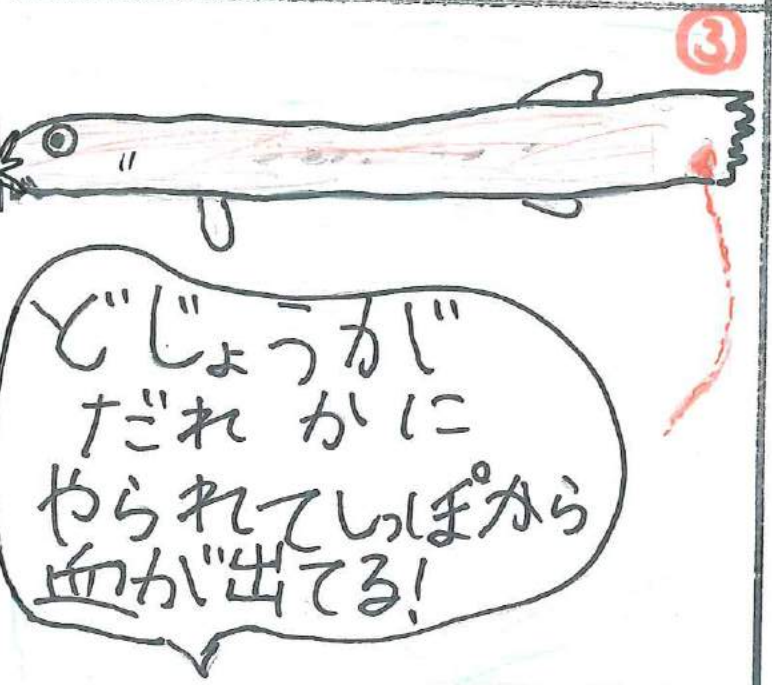 ③
どじょうが
だれかに
やられてしっぽから
血が出てる!